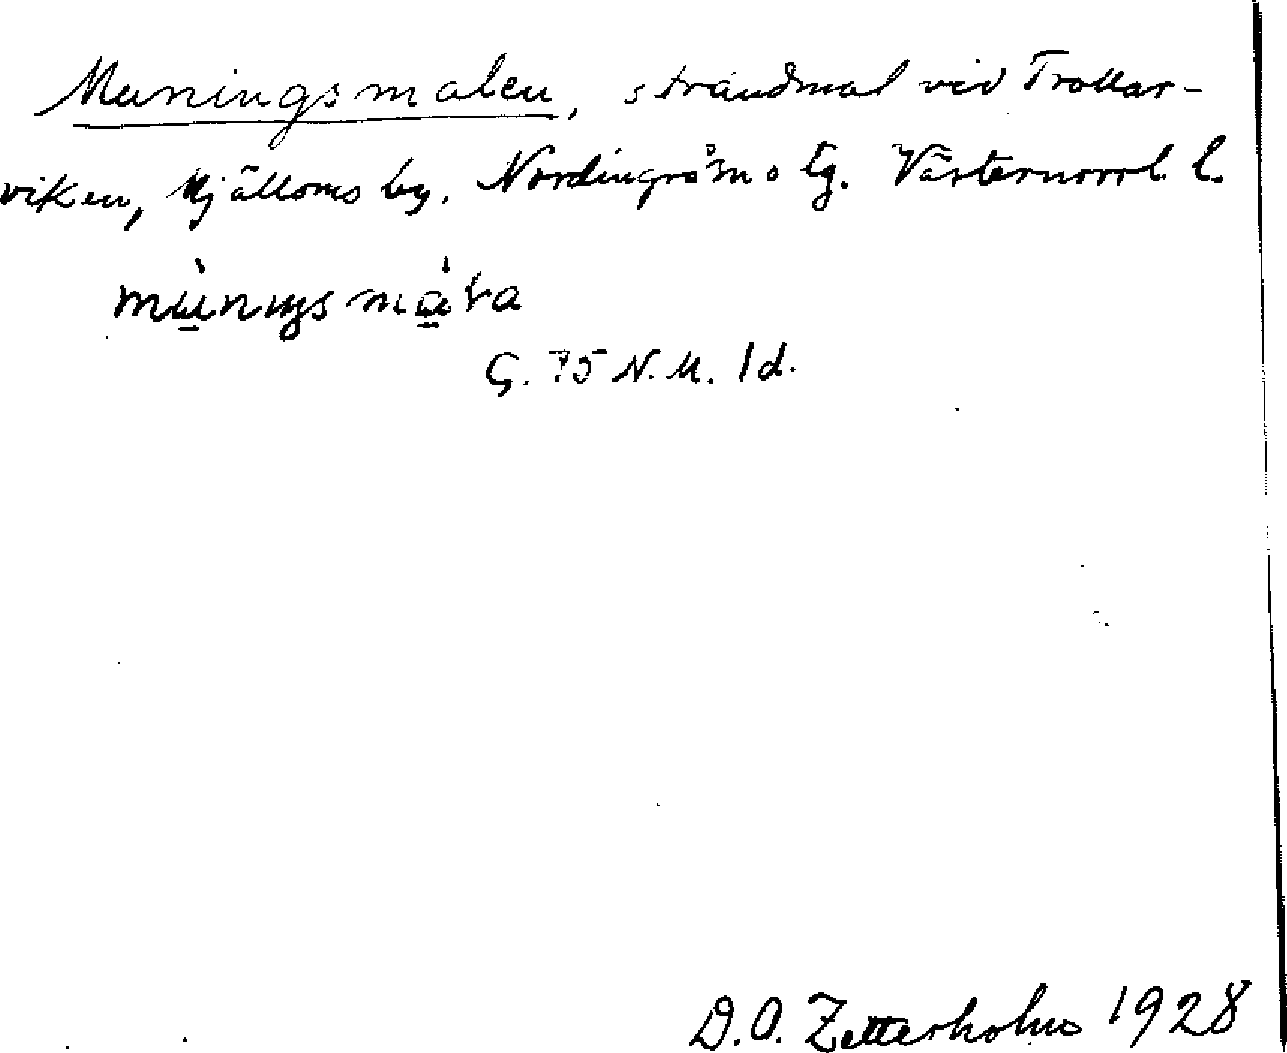 Maningsmalen, strandmal vid Trollar-
viken, Mjälloms by. Nordingrå sn o tg. Västernorrl. l.
mànıŋsmàɽa
G. 75 N.M. ld.
D.O. Zetterholm 1928